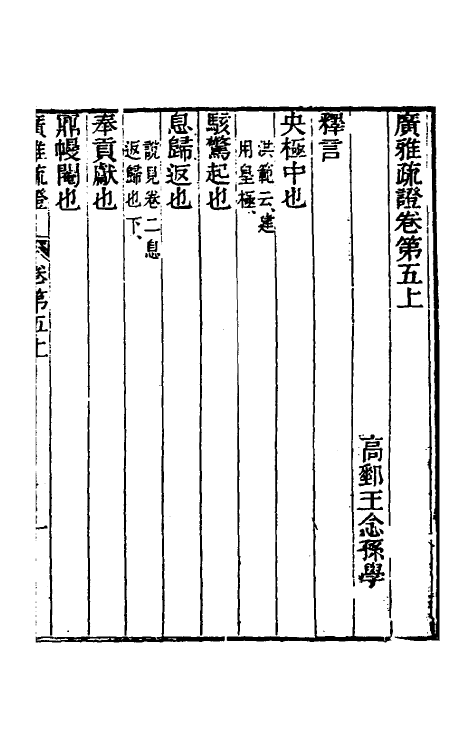 廣雅疏證卷第五上
高郵王念孫學
釋言
央極中也
洪範云、建
用皇極、
駭驚起也
息歸返也
說見卷二息
返歸也下、
奉貢獻也
鼏幔閹也
廣雅疏證
卷第五上
一